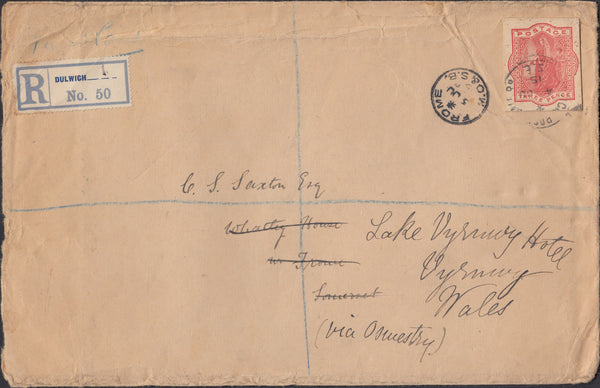 R
DULWICH
No. 50
FROME
M.O.&S.B.
POSTAGE
THREE PENCE
C. S. Saxton Esq
Whatley House
nr Frome
Somerset
Lake Vyrnwy Hotel
Vyrnwy
Wales
(via Oswestry)